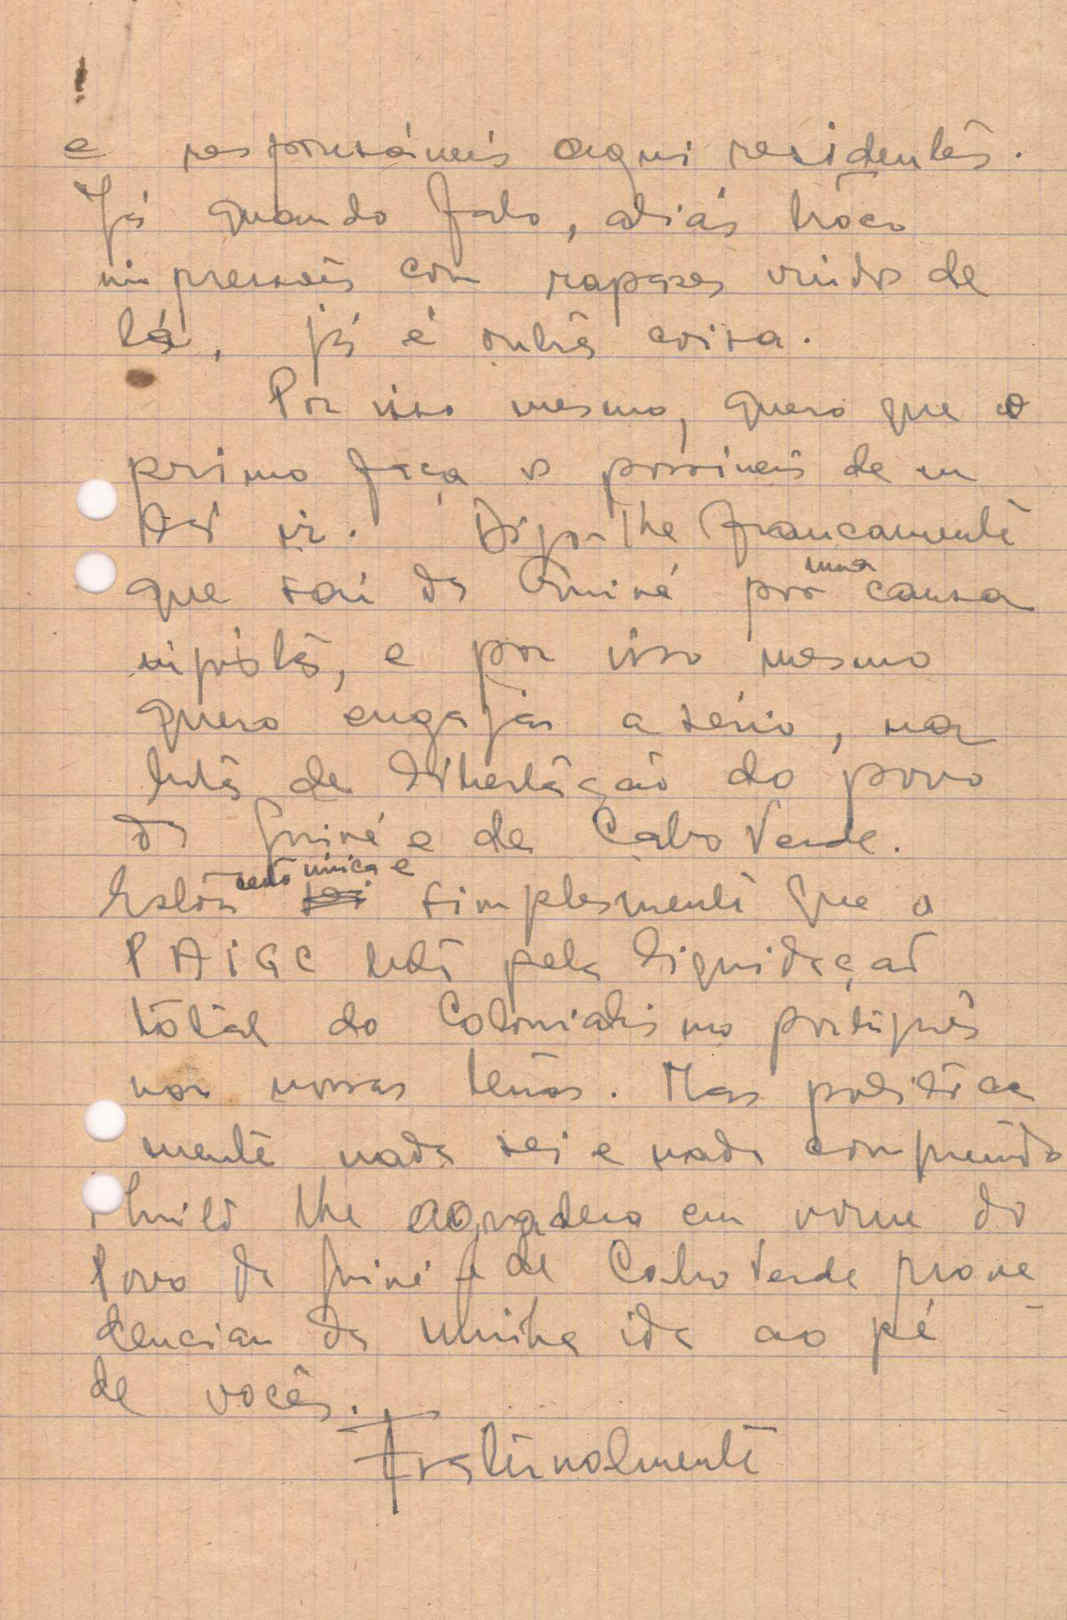 e responsáveis aqui residentes.
Já quando falo, aliás troco
impressões com rapazes vindos de
lá, já é outra coisa.
Por isso mesmo, quero que o
primo faça os possíveis de eu
ir. Digo-lhe francamente
que saí da Guiné por uma causa
injusta, e por isso mesmo
quero engajar a sério, na
luta de libertação do povo
da Guiné e de Cabo Verde.
Estou certo única e simplesmente que o
PAIGC luta pela liquidação
total do Colonialismo português
nas nossas terras. Mas politica
mente nada sei e nada compreendo
Muito lhe agradeço em nome do
Povo da Guiné e de Cabo Verde prove
denciar da minha ida ao pé
de vocês.
Fraternalmente